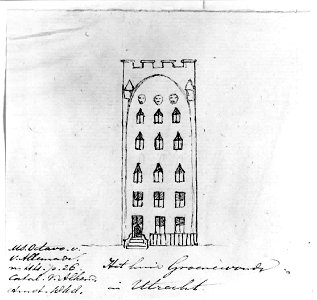 Md. Octavo. v.
V. Allemade.
p. 26.
Catal. V. Alkem.
Het huis Groenewoude
in Utrecht